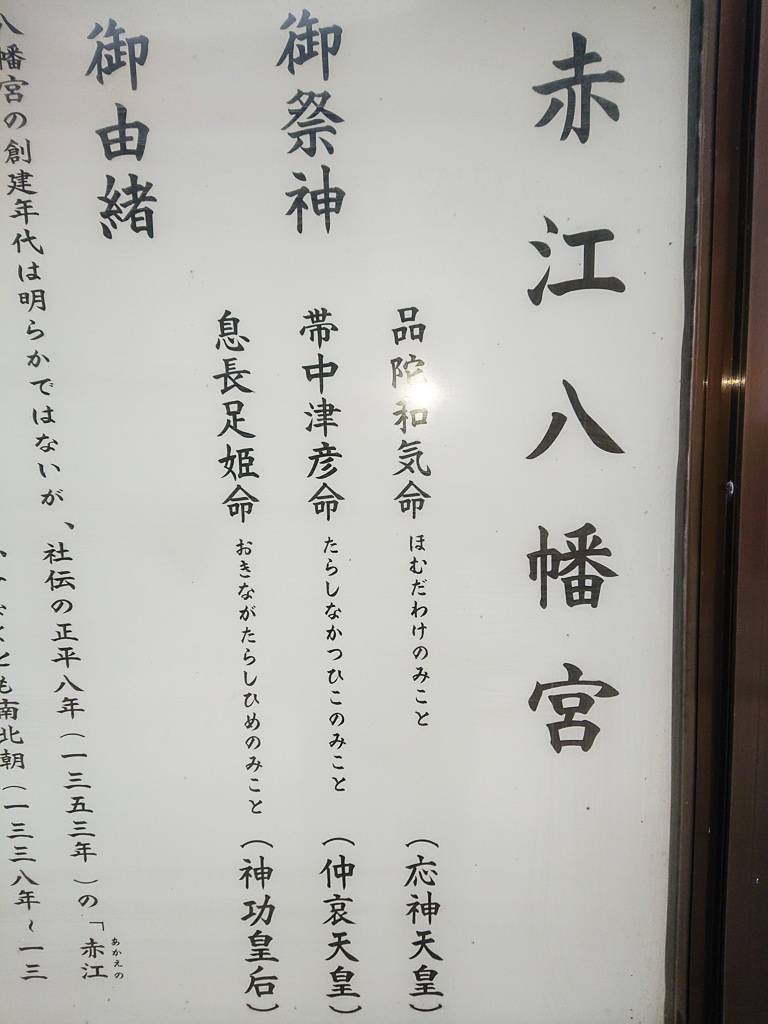 赤江八幡宮
御祭神
品陀和気命 ほむだわけのみこと (応神天皇)
帯中津彦命 たらしなかつひこのみこと (仲哀天皇)
息長足姫命 おきながたらしひめのみこと (神功皇后)
御由緒
八幡宮の創建年代は明らかではないが、社伝の正平八年(一三五三年)の「赤江
あかえの
も南北朝(一三三八年~一三